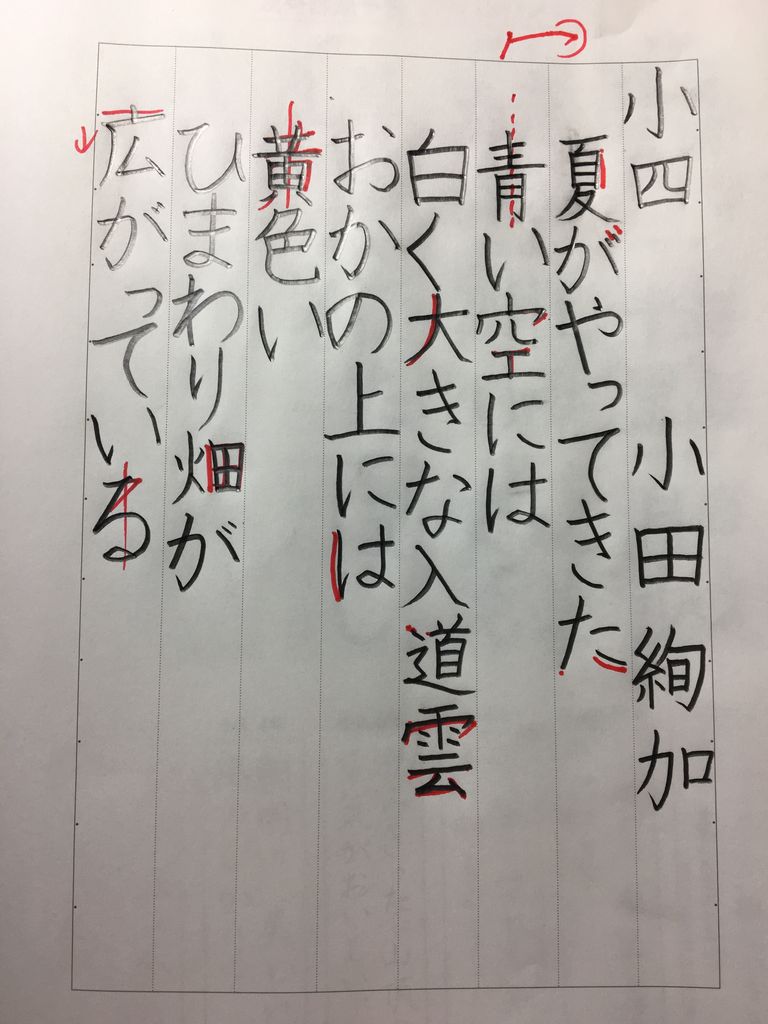 小四 小田絢加
夏がやってきた
青い空には
白く大きな入道雲
おかの上には
黄色い
ひまわり畑が
広がっている